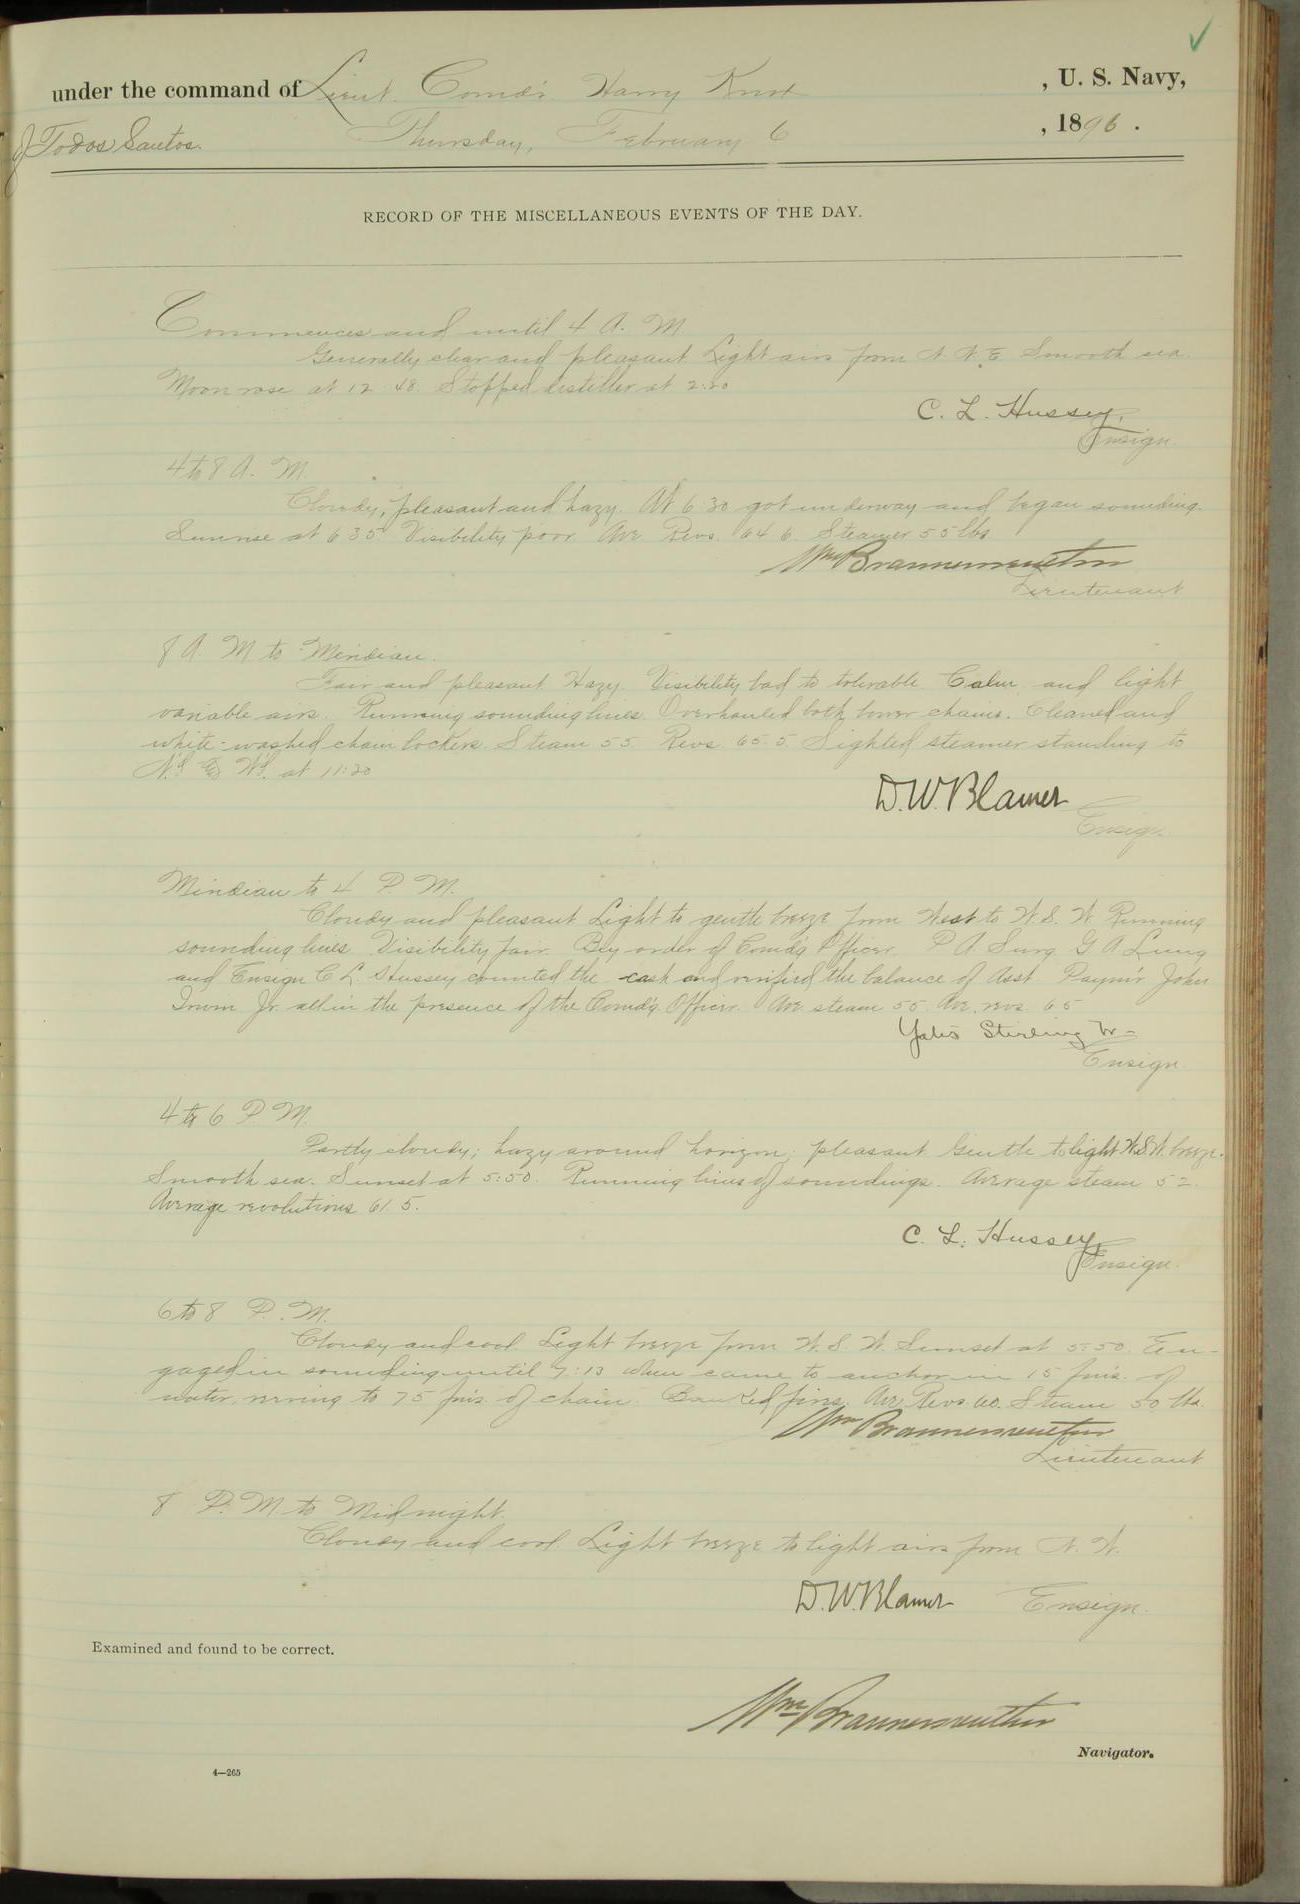 under the command of Lieut. Comd'r Harry Knox , U. S. Navy,
of Todos Santos. Thursday, February 6 , 1896 .
RECORD OF THE MISCELLANEOUS EVENTS OF THE DAY.
Commences and until 4 A. M
Generally clear and pleasant Light airs from N. N. E Smooth sea.
Moon rose at 12 48. Stopped distiller at 2:20
C. L. Hussey,
Ensign.
4 to 8 A. M.
Cloudy, pleasant and hazy. At 6:30 got underway and began sounding.
Sunrise at 6 35. Visibility poor Ave Revs. 64 6. Steamer 55 lbs
Wm Braunersreuther
Lieutenant
8 A. M to Meridian.
Fair and pleasant Hazy. Visibility bad to tolerable Calm and light
variable airs. Running sounding lines. Overhauled both bower chains. Cleaned and
white-washed chain lockers. Steam 55. Revs. 65.5. Sighted steamer standing to
at 11:20
D. W. Blamer
Ensign
Meridian to 4 P. M.
Cloudy and pleasant Light to gentle breeze from West to W. S. W Running
sounding lines. Visibility fair. By order of Comd'g Officer P. A. Surg. G A Lung
and Ensign C L. Hussey counted the cash and verified the balance of Asst Paym'r John
Irwin Jr. all in the presence of the Comd'g. Officer. Ave steam 55. Ave. revs. 65
Yates Stirling Jr
Ensign
4 to 6 P. M.
Partly cloudy; hazy around horizon; pleasant Gentle to light W.S.W. breeze.
Smooth sea. Sunset at 5:50. Running lines of soundings. Average steam 52.
Average revolutions 61.5.
C. L. Hussey,
Ensign.
6 to 8 P. M.
Cloudy and cool Light breeze from W. S. W. Sunset at 5:50. En-
gaged in sounding until 7:13 when came to anchor in 15 fms. of
water, veering to 75 fms. of chain. Banked fires. Ave Revs. 60. Steam 50 lbs.
Wm Braunersreuther
Lieutenant
8 P. M. to Midnight.
Cloudy and cool Light breeze to light airs from N. W.
D. W. Blamer Ensign.
Examined and found to be correct.
Wm Braunersreuther
Navigator.
4—265